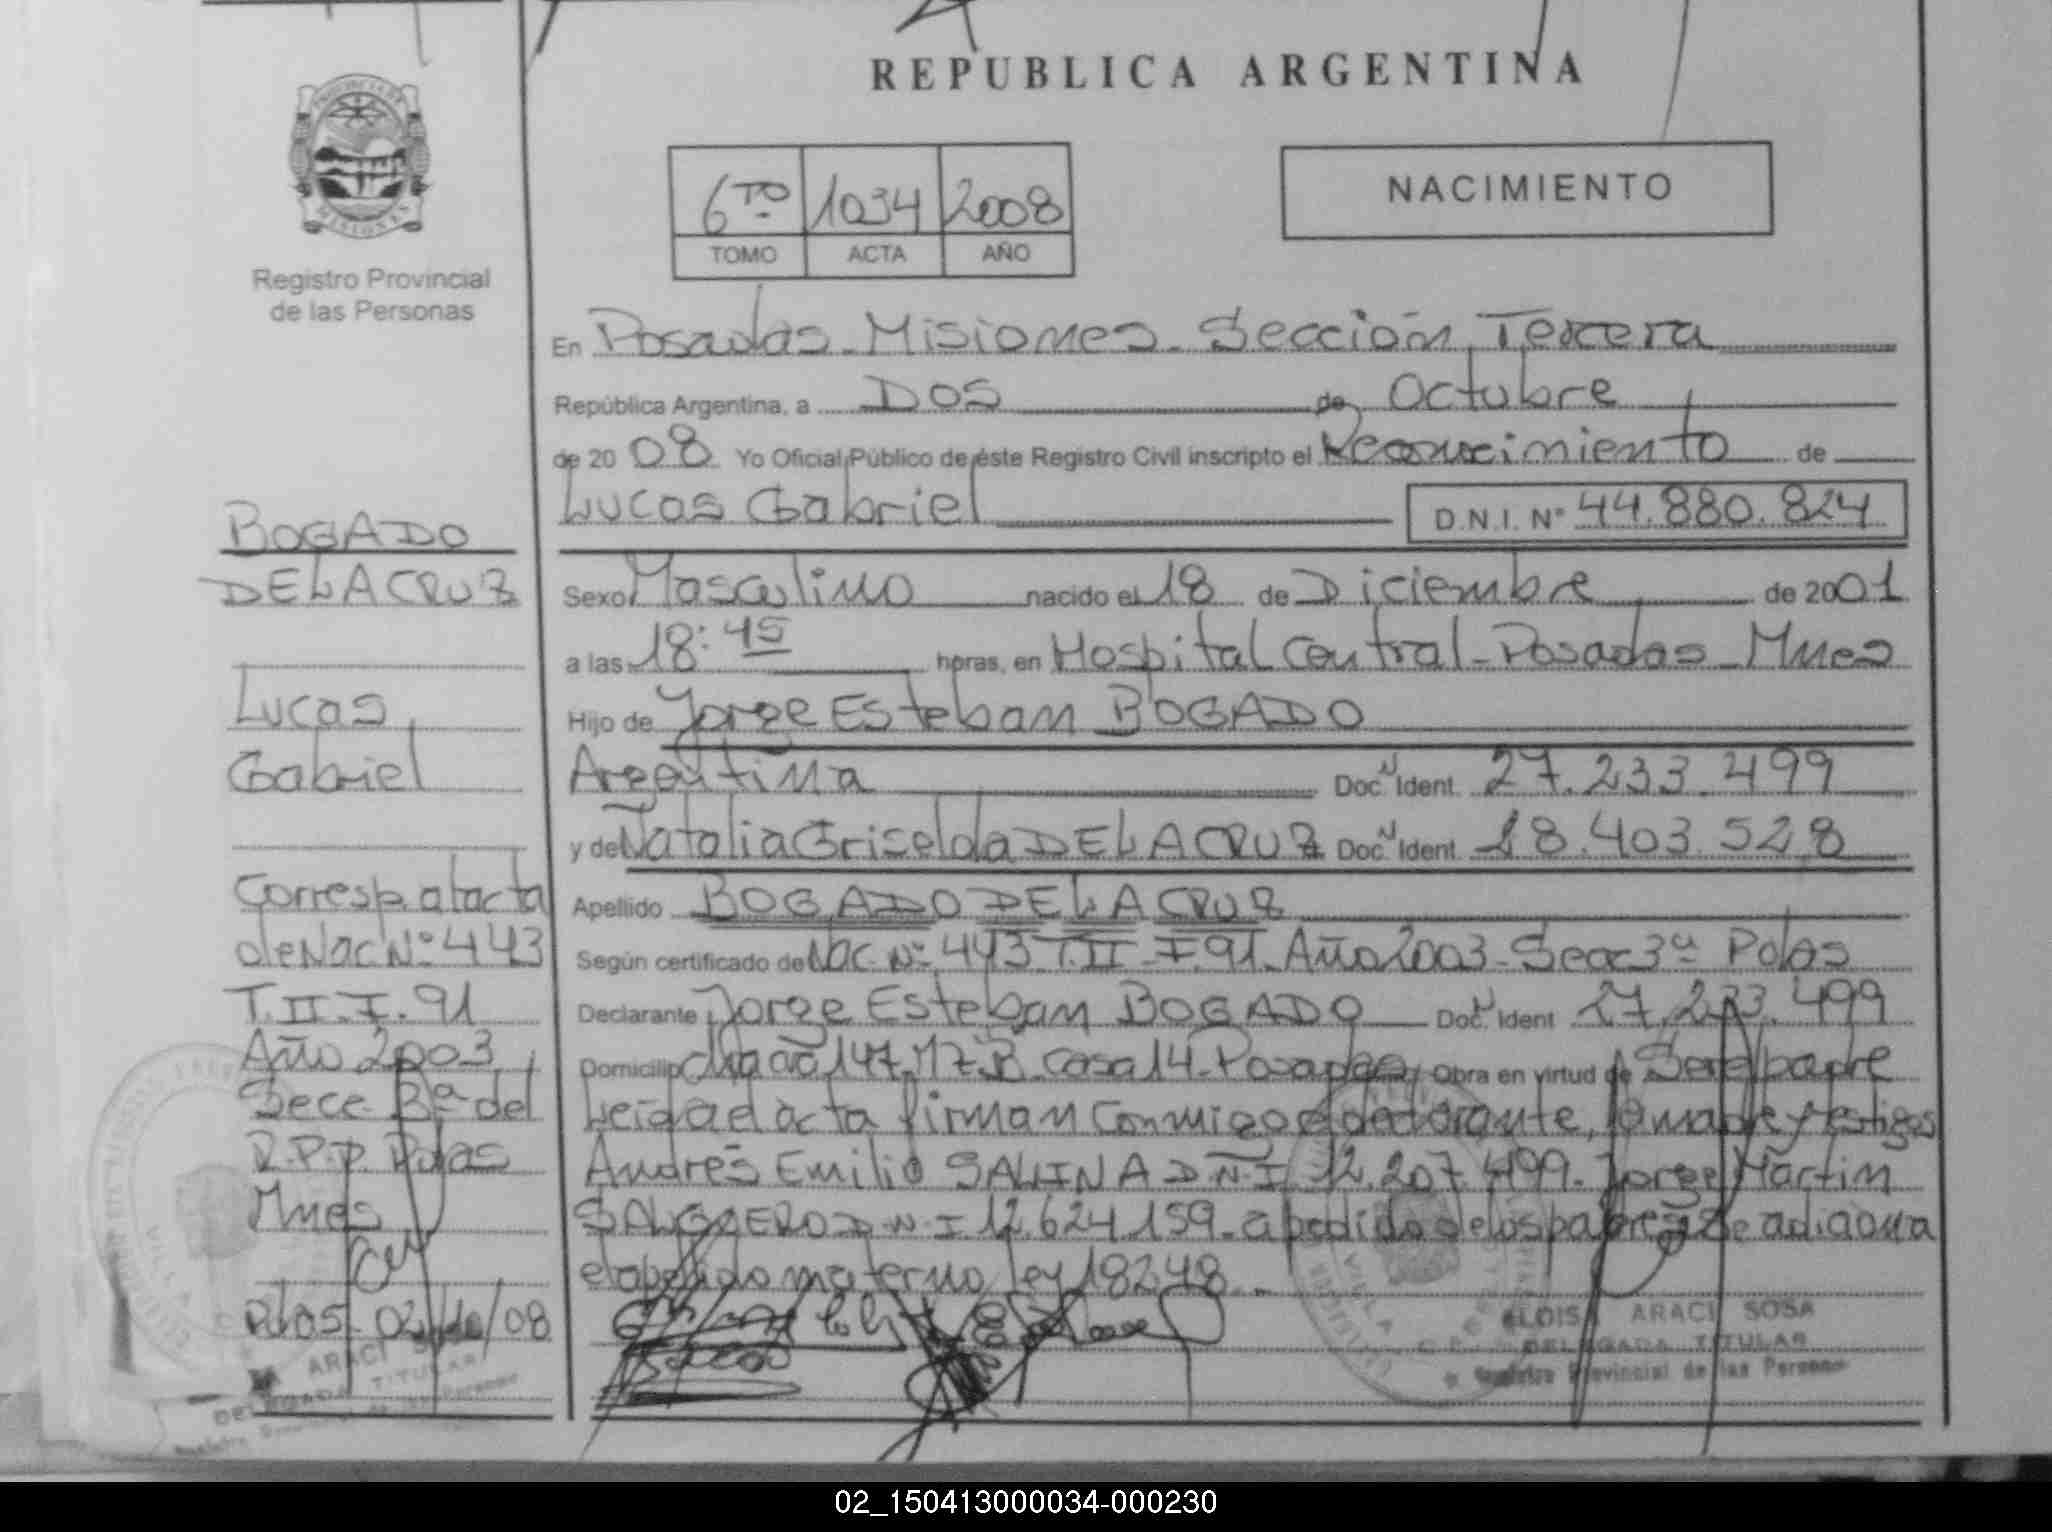 REPUBLICA ARGENTINA
6TO 1034 2008
TOMO ACTA AÑO
NACIMIENTO
Registro Provincial
de las Personas
BOGADO
DE LA CRUZ
Lucas
Gabriel
Corresp. al acta
de Nac Nº 443
T. II F. 91
Año 2003
Secc 3ª del
R.P.P. Pdas
Mnes
Pdas 02/10/08
En Posadas - Misiones - Sección Tercera
República Argentina, a Dos de Octubre
de 2008 Yo Oficial Público de éste Registro Civil inscripto el Reconocimiento de
Lucas Gabriel D.N.I. Nº 44.880.824
Sexo Masculino nacido el 18 de Diciembre de 2001
a las 18:45 horas, en Hospital Central - Posadas - Mnes
Hijo de Jorge Esteban BOGADO
Argentina Doc. N Ident. 27.233.499
y de Natalia Griselda DE LA CRUZ Doc. N Ident. 18.403.528
Apellido BOGADO DE LA CRUZ
Según certificado de Nac. Nº 443 T. II F. 91 Año 2003 - Secc 3ª Pdas
Declarante Jorge Esteban BOGADO Doc. N Ident 27.233.499
Domicilio 147 Casa 14 - Posadas Obra en virtud de Ser el padre
Leida el acta firman conmigo el declarante, la madre y testigos
Andrés Emilio SALINA D.N.I. 12.207.499 - Jorge Martin
SALGUERO D.N.I 12.624.159 - a pedido de los padres se adiciona
el apellido materno ley 18248
ARACI SOSA
DELEGADA TITULAR
Registro Provincial de las Personas
02_150413000034-000230